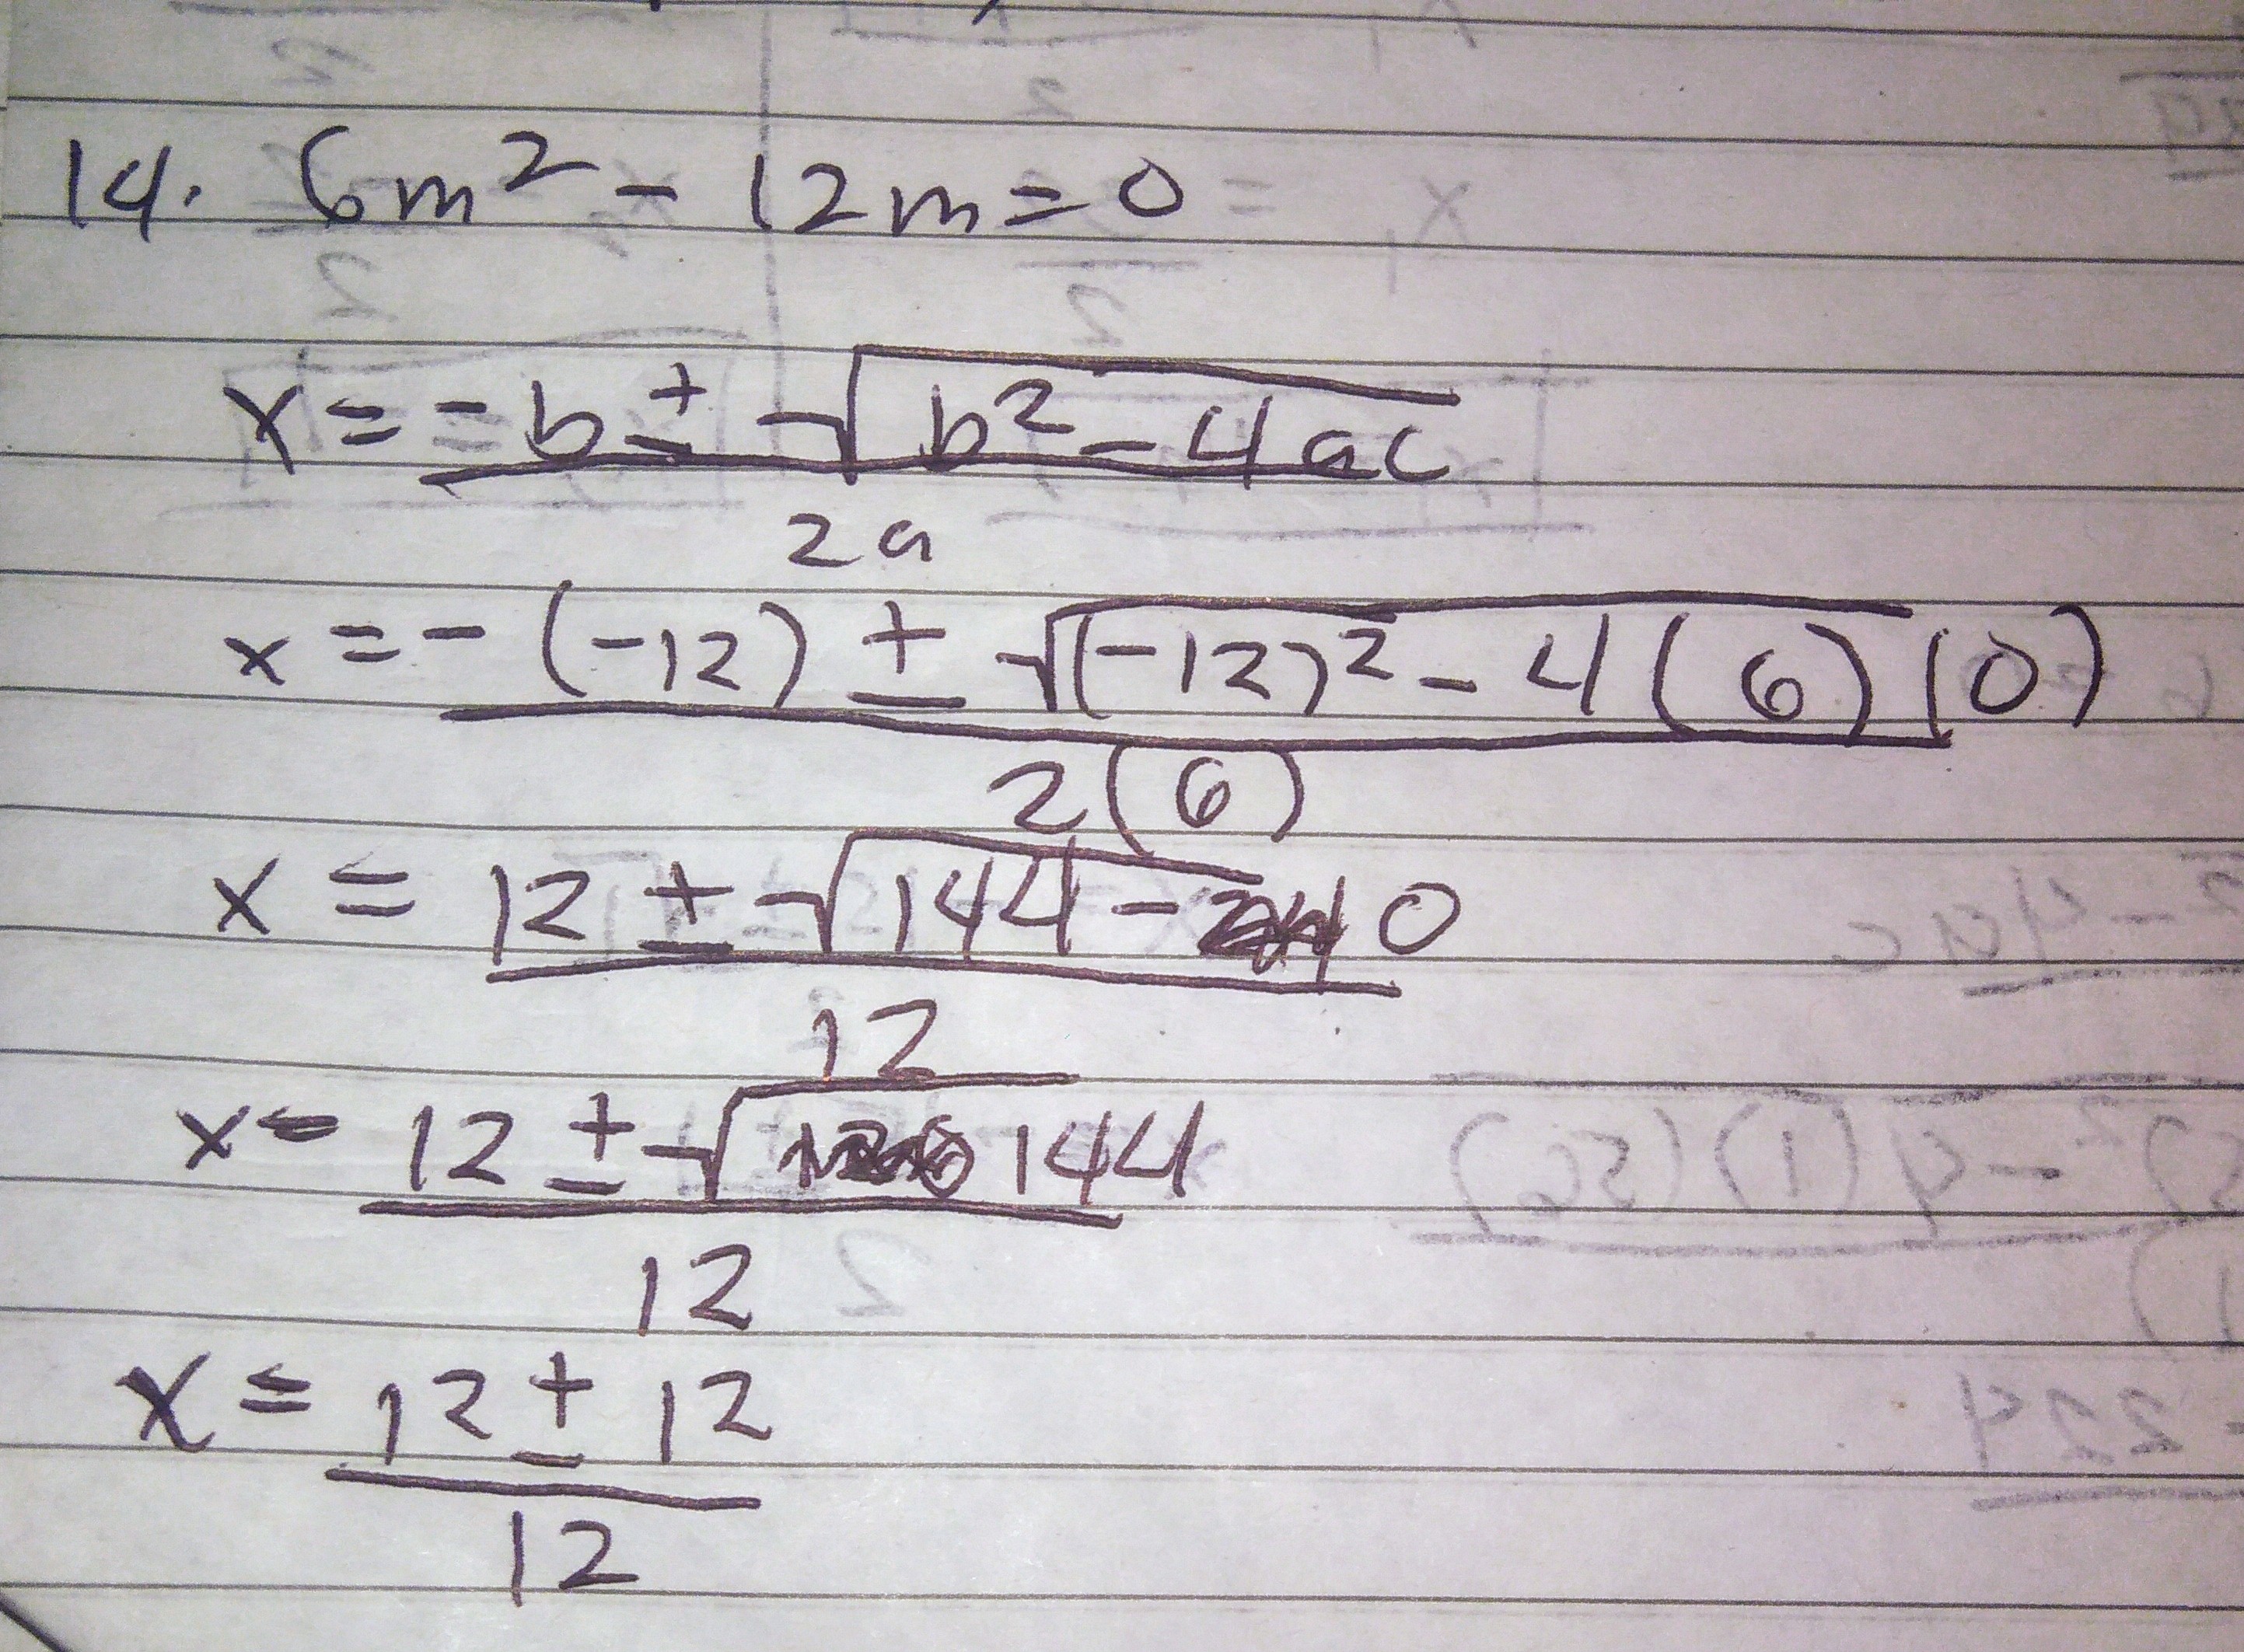 14. 6m² - 12m = 0
x = -b ± √b² - 4ac
2a
x = -(-12) ± √(-12)² - 4(6)(0)
2(6)
x = 12 ± √144 - 0
12
x = 12 ± √144
12
x = 12 ± 12
12